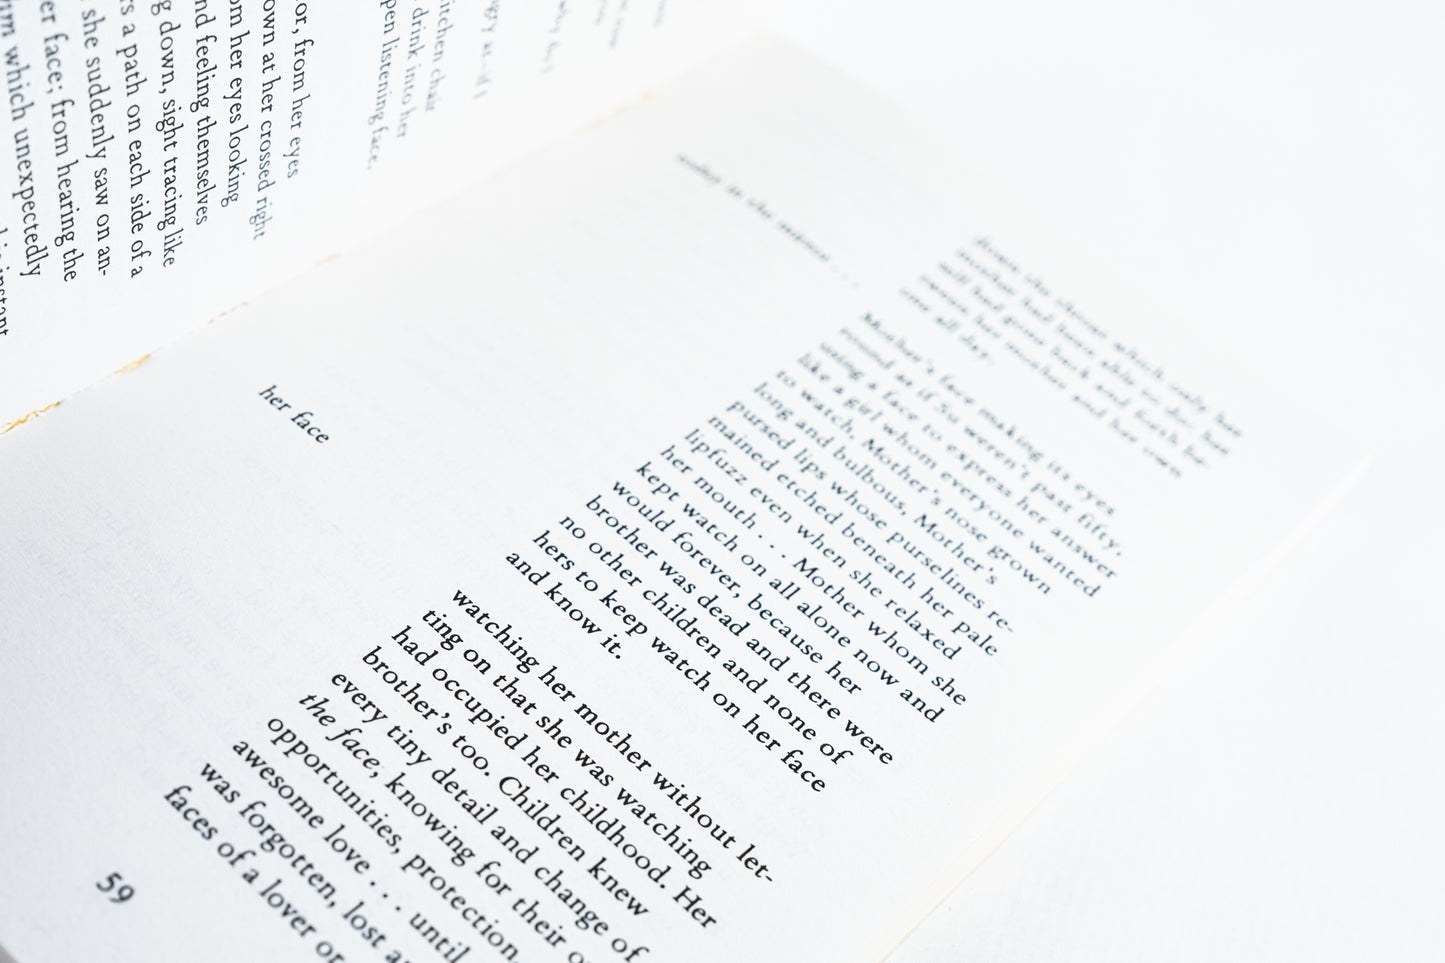 or, from her eyes
own at her crossed right
om her eyes looking
nd feeling themselves
g down, sight tracing like
rs a path on each side of a
she suddenly saw on an-
er face; from hearing the
which unexpectedly
instant
itchen chair
drink into her
pen listening face.
down the throat which only her
mother had been able to do; her
had gone back and forth be-
tween her mother and her own
one all day.
Mother's face making its eyes
round as if Su weren't past fifty,
using a face to express her answer
like a girl whom everyone wanted
to watch, Mother's nose grown
long and bulbous, Mother's
pursed lips whose purselines re-
mained etched beneath her pale
lipfuzz even when she relaxed
her mouth . . . Mother whom she
kept watch on all alone now and
would forever, because her
brother was dead and there were
no other children and none of
hers to keep watch on her face
and know it.
her face
watching her mother without let-
ting on that she was watching
had occupied her childhood. Her
brother's too. Children knew
every tiny detail and change of
the face, knowing for their o
opportunities, protection,
awesome love . . . until
was forgotten, lost a
faces of a lover or
59